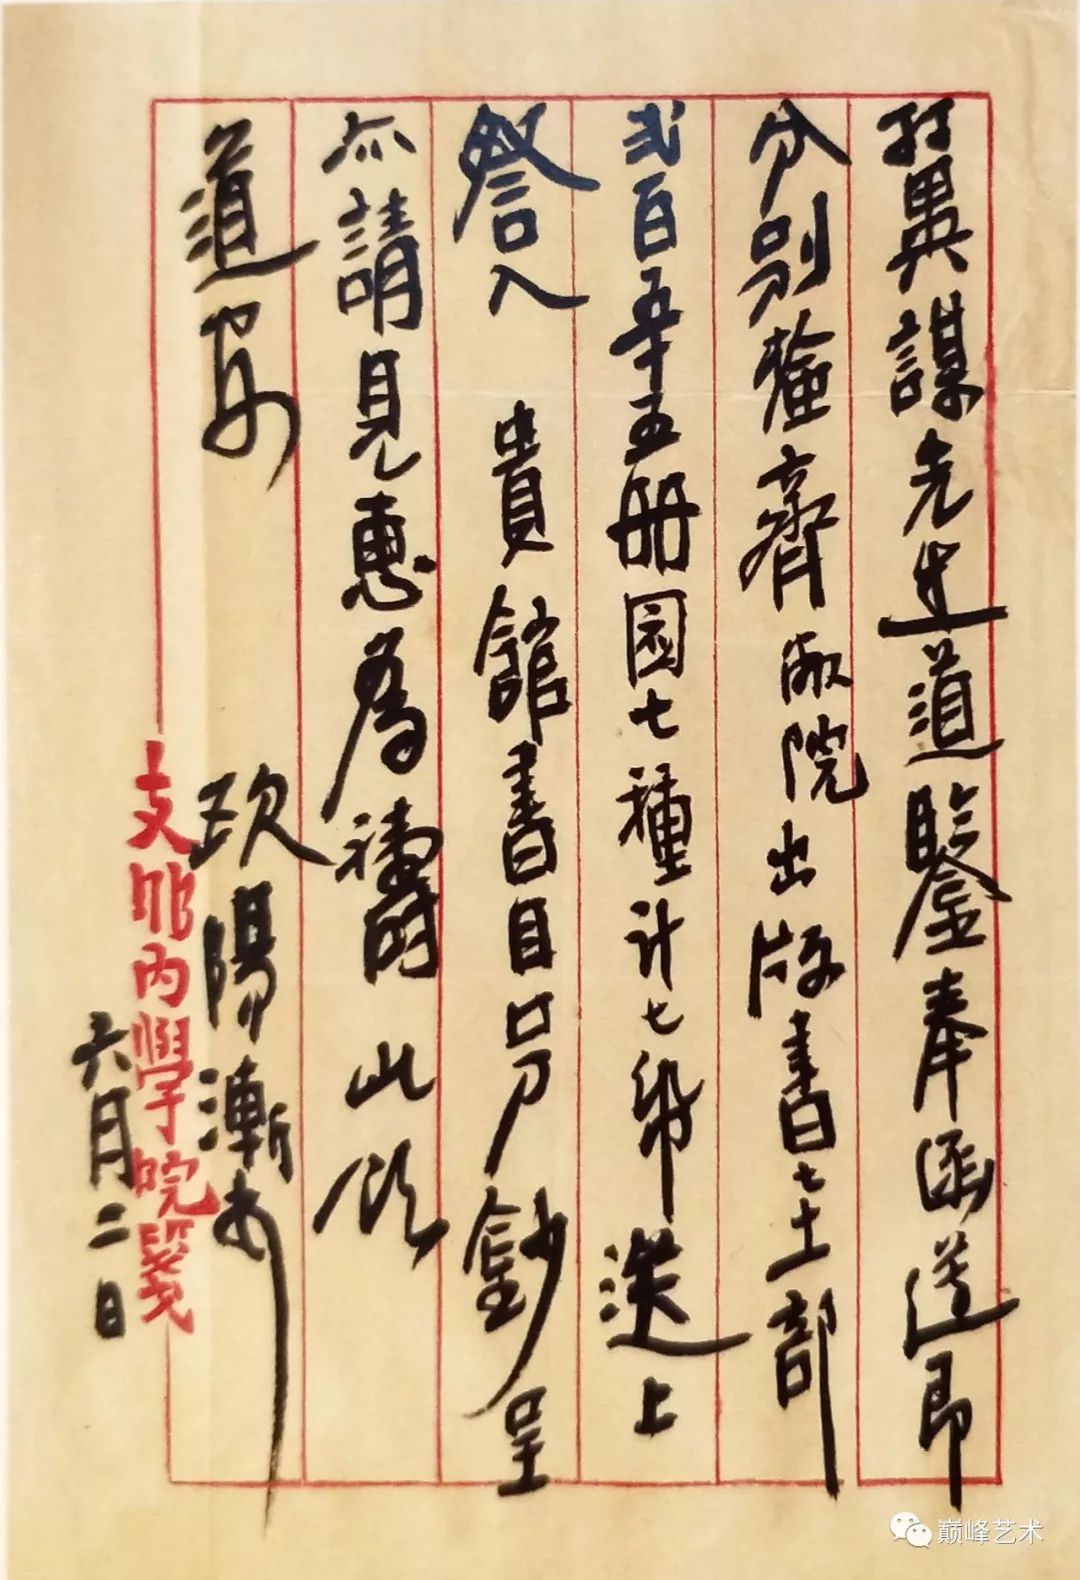 翼謀先生道鑒奉函送即
分别檢齊敝院出版書七十一部
弍百五十五册園七種計七㡧送上
詧入　貴館書目另鈔呈
請見惠爲禱此頌
道安
歐陽漸
六月二日
支那內學院箋
巅峰艺术